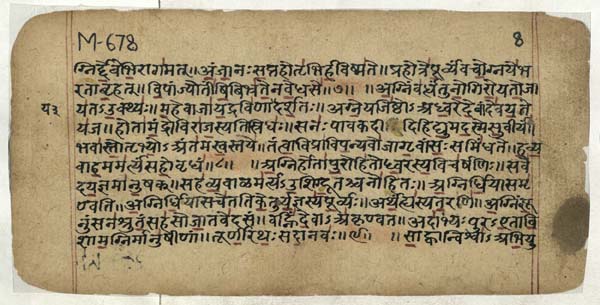 M-678 8
ग्निर्देवेभिरागमत्॥ अंजानः सप्तहोतृभिर्हविष्मते॥ प्रहोत्रेपूर्व्यंवचोग्नयेभ
रताबृहत्॥ विपांज्योतींषिबिभ्रतेनवेधसे॥७॥ ॥अग्निंवर्धंतुनोगिरोयतोजा
यतऽउक्थ्यः॥ महेवाजायद्रविणायदर्शतः॥ अग्नेयजिष्ठोऽअध्वरेदेवान्देवयते
यज॥ होतामंद्रोविराजस्यतिस्रिधः॥ सनःपावकदीदिहिद्युमदस्मेसुवीर्यं॥
भवास्तोतृभ्योऽअंतमःस्वस्तये॥ तंत्वाविप्राविपन्यवोजागृवांसःसमिंधते॥ हव्य
वाहममर्त्यंसहोवृधं॥८॥ ॥अग्निर्होतापुरोहितोध्वरस्यविचर्षणिः॥ सवे
दयज्ञमानुषक्॥ सहव्यवाळमर्त्यऽउशिग्दूतश्चनोहितः॥ अग्निर्धियासमृ
ण्वति॥ अग्निर्धियासचेततिकेतुर्यज्ञस्यपूर्व्यः॥ अर्थंह्यस्यतरणि॥ अग्निंसू
नुंसनश्रुतंसहसोजातवेदसं॥ वह्निंदेवाऽअकृण्वत॥ अदाभ्यःपुरऽएतावि
शामग्निर्मानुषीणां॥ तूर्णीरथःसदानवः॥९॥ ॥साह्वान्विश्वाऽअभियु